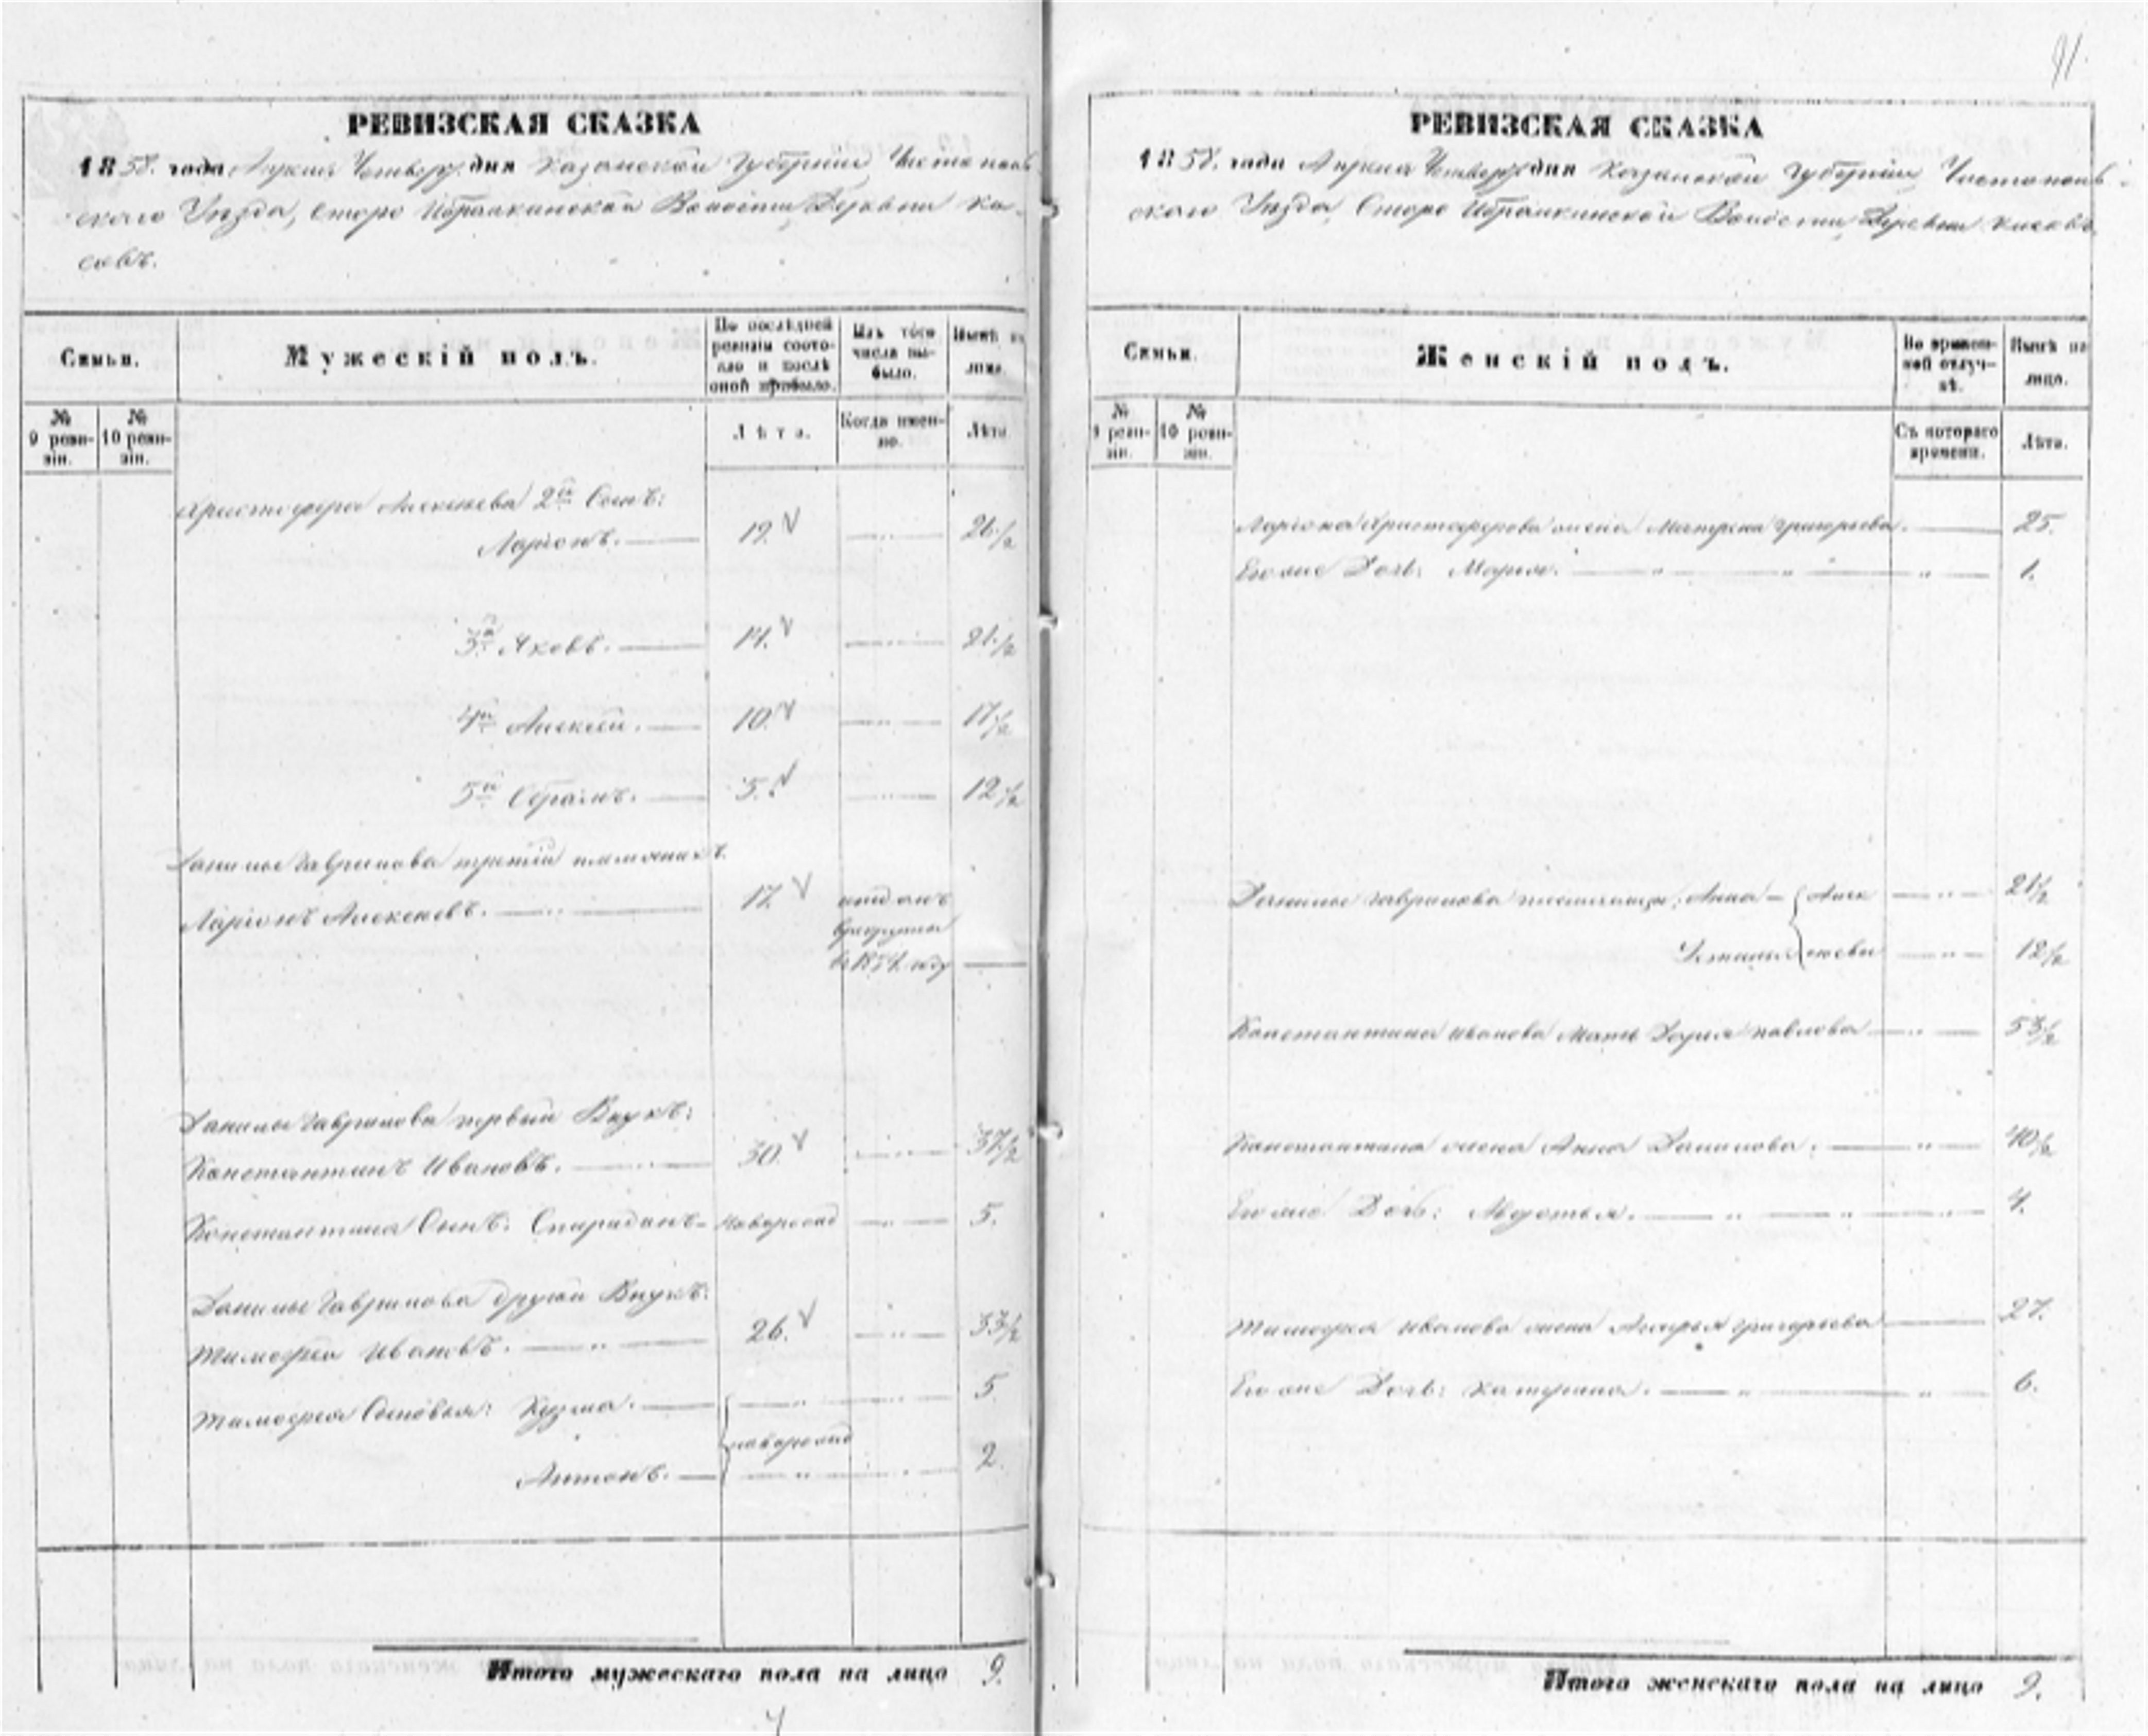 91.
РЕВИЗСКАЯ СКАЗКА
1858. года Апреля Четверт. дня Казанской Губернии Чистополь-
скаго Уезда, Старо Ибрайкинской Волости Деревни Ка-
совъ.
Семьи.
Мужескій полъ.
По послѣдней ревизіи состояло и послѣ оной прибыло.
Изъ того числа выбыло.
Нынѣ на лицо.
№ 9 ревизіи.
№ 10 ревизіи.
Лѣта.
Когда именно.
Лѣта.
Христофора Алексеева 2й Сынъ:
Ларіонъ. 19. 26 1/2
3й Яковъ. 14. 21 1/2
4й Алексей. 10. 17 1/2
5й 5. 12 1/2
Данилы Гаврилова третій племянникъ.
Ларіонъ Алексеевъ. 17. отданъ
в рекруты
в 1854 году
Данилы Гаврилова первый Внукъ:
Константинъ Ивановъ. 30. 37 1/2
Константина Сынъ: Спиридонъ новорожд 5.
Данилы Гаврилова другой Внукъ:
Тимофей Ивановъ. 26. 33 1/2
Тимофея Сыновья: Кузма. 5
новорожд
Антонъ. 2.
Итого мужескаго пола на лицо 9.
РЕВИЗСКАЯ СКАЗКА
1858. года Апреля Четверт. дня Казанской Губернии Чистополь-
скаго Уезда, Старо Ибрайкинской Волости, Деревни
Семьи.
Женскій полъ.
Во временной отлучкѣ.
Нынѣ на лицо.
№ 9 ревизіи.
№ 10 ревизіи.
Съ котораго времени.
Лѣта.
Лариона Христофорова жена Матрена Григорьева. 25.
Его же Дочь: Марья. 1.
Данилы Гаврилова племянницы: Анна Алек 21 1/2
Устинья сеевы 12 1/2
Константина Иванова Мать Дарья Павлова 53 1/2
Константина жена Анна Данилова. 40 1/2
Его же Дочь: Авдотья. 4.
Тимофея Иванова жена Григорьева 27.
Его же Дочь: Катерина. 6.
Итого женскаго пола на лицо 9.